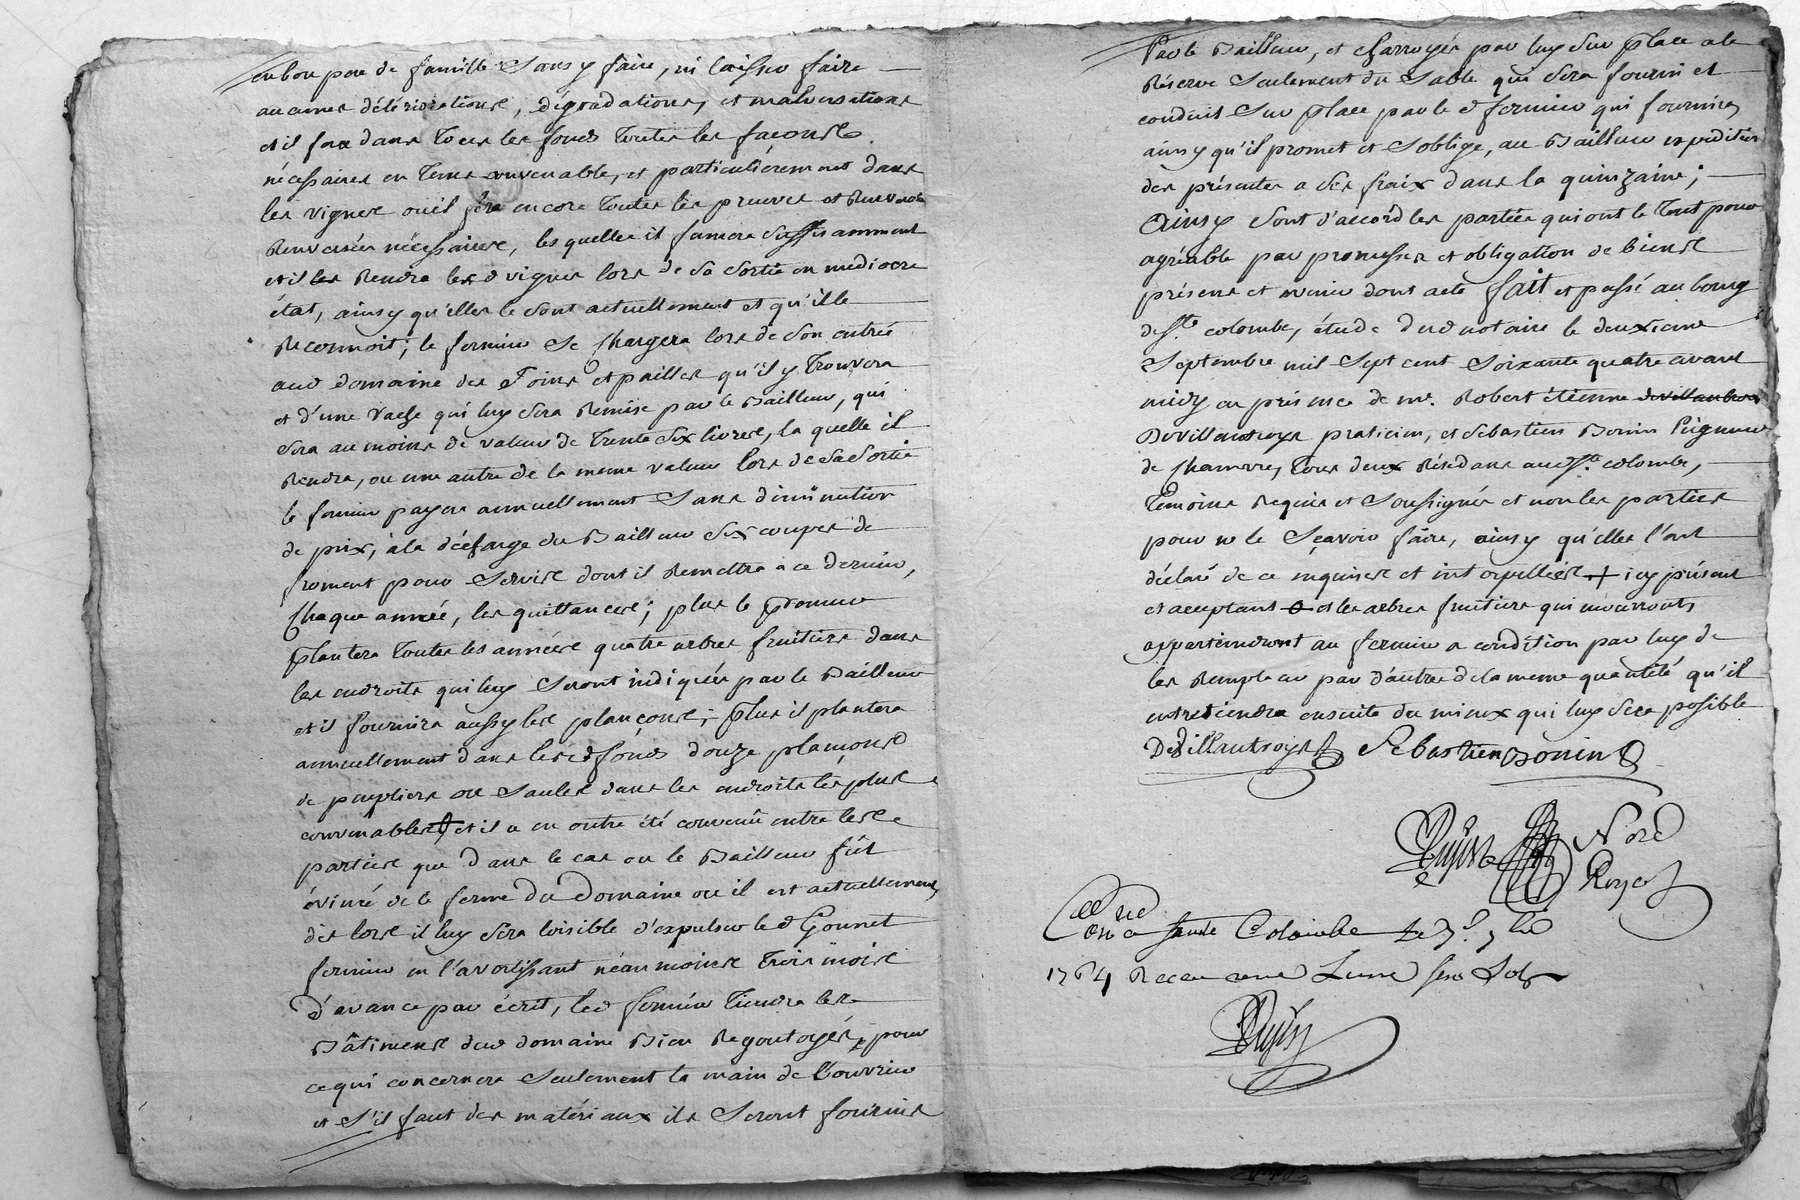 en bon pere de famille Sans y faire, ni laisser faire
aucunes détériorations, dégradations, et malversations
et il fera dans tous les fonds toutes les façons
nécessaires en tems convenable, et particulièrement dans
les vignes ou il fera encore toutes les preuves et
Renversées nécessaires, les quelles il fumera Suffisamment
et il les Rendra lesd vignes lors de Sa Sortie en mediocre
état, ainsy qu'elles le sont actuellement et qu'ille
Reconnoit; le fermier Se Chargera lors de Son entrée
aud domaine des foins et pailles qu'il y trouvera
et d'une vache qui luy Sera Remise par le Bailleur, qui
Sera au moins de valeur de trente Six livres, la quelle il
Rendra, ou une autre de la meme valeur lors de Sa Sortie
le fermier payera annuellement Sans diminution
de prix, à la décharge du Bailleur Six coupes de
froment pour Servis dont il Remettra à ce dernier,
Chaque année, les quittances; plus le preneur
plantera toutes les années quatre arbres fruitiers dans
les endroits qui luy Seront indiqués par le Bailleur
et il fournira aussy les plançons; plus il plantera
annuellement dans lesd fonds douze plançons
de peupliers ou Saules dans les endroits les plus
convenables et il a en outre été convenû entre les
parties que dans le cas ou le Bailleur fût
évincé de la ferme du Domaine ou il est actuellement,
dès lors il luy Sera loisible d'expulser led Gonnet
fermier en l'avertissant néanmoins trois mois
d'avance par écrit, led fermier tiendra les
Bâtimens dud domaine Bien Regoutoyés, pour
ce qui concernera Seulement la main de l'ouvrier
et S'il faut des matériaux ils Seront fournis
par le Bailleur, et charroyés par luy Sur place a la
Réserve Seulement du Sable qui Sera fourni et
conduit Sur place par led fermier qui fournira
ainsy qu'il promet et S'oblige, au Bailleur expédition
des présentes a Ses fraix dans la quinzaine;
Ainsy Sont d'accord les parties qui ont le tout pour
agréable par promesses et obligation de biens
présens et avenir dont acte fait et passé au bourg
de Ste colombe, étude dud notaire le deuxieme
Septembre mil Sept cent Soixante quatre avant
midy en présence de mr. Robert étienne
Devillantroys praticien, et Sebastien Donin Peigneur
de chanvre, tous deux Résidans aud Ste colombe,
temoins Requis et Soussignés et non les parties
pour ne le Sçavoir faire, ainsy qu'elles l'ont
déclaré de ce enquises et interpellées + icy présent
et acceptant et les arbres fruitiers qui mourront,
appartiendront au fermier a condition par luy de
les Remplacer par d'autres de la meme quantité qu'il
entretiendra ensuite du mieux qui luy Sera possible
DeVillantroys Sebastien Donin
Nore
Royal
Con a Sainte Colombe Le 7e 7bre
1764 Recu une Livre Six Sols